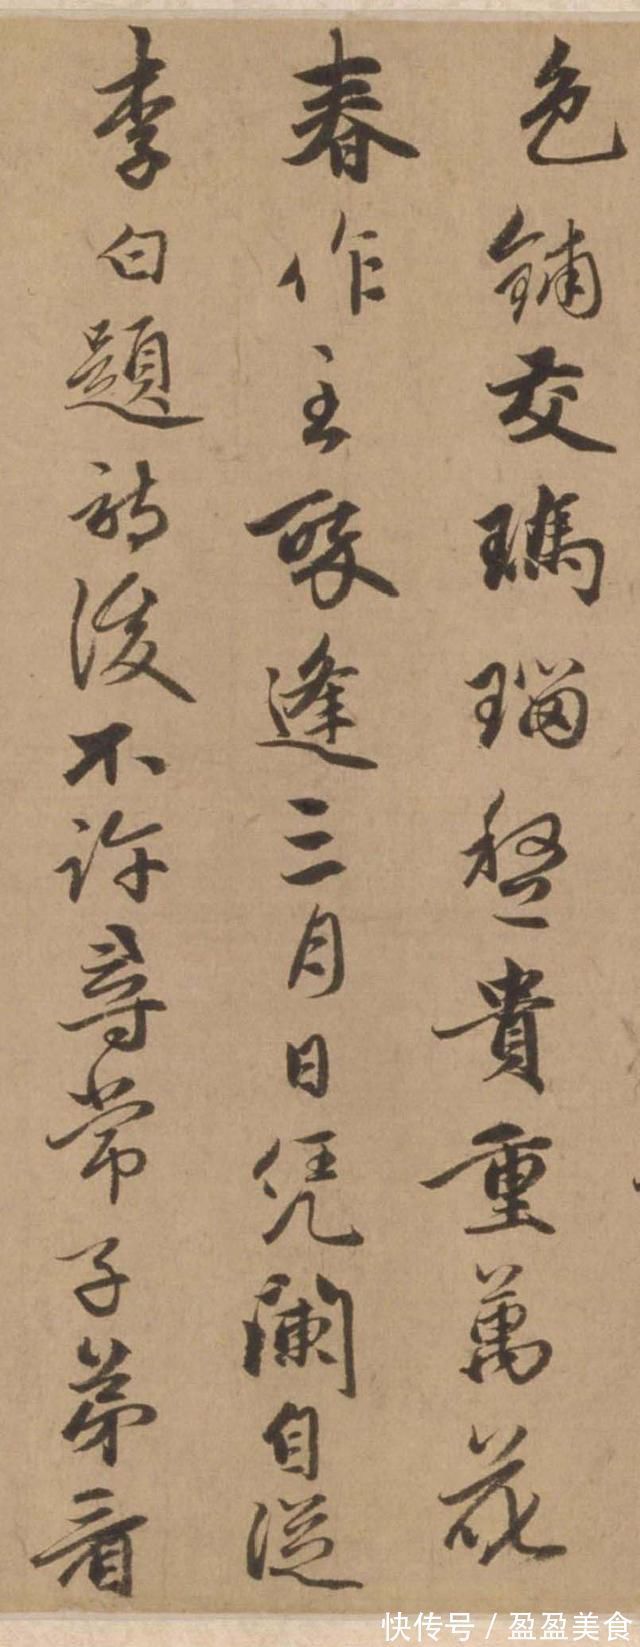 色鋪交瑪瑙盤貴重萬花
春作主聚逢三月日凭闌自從
李白題詩後不許尋常子弟看
快传号 / 盈盈美食